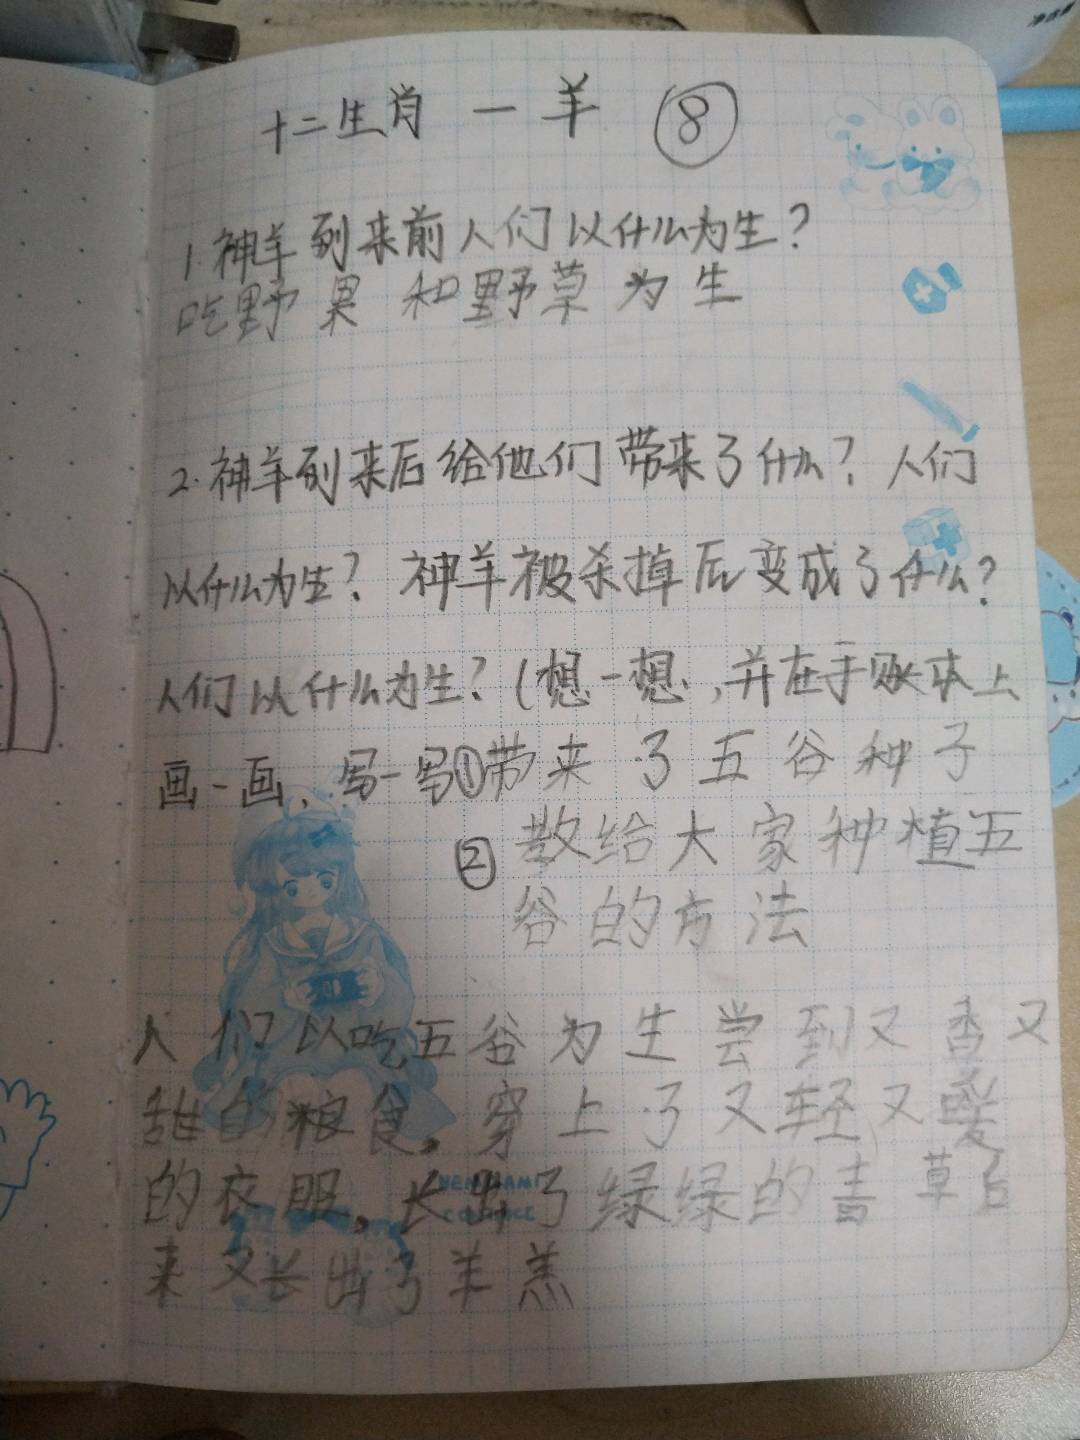 十二生肖 一 羊 ⑧
1.神羊到来前人们以什么为生?
吃野果和野草为生
2.神羊到来后给他们带来了什么?人们
以什么为生?神羊被杀掉后变成了什么?
人们以什么为生?(想一想,并在手账本上
画一画,写一写①带来了五谷种子
②教给大家种植五
谷的方法
人们以吃五谷为生尝到又香又
甜的粮食,穿上了又轻又暖
的衣服,长出了绿绿的青草后
来又长出了羊羔